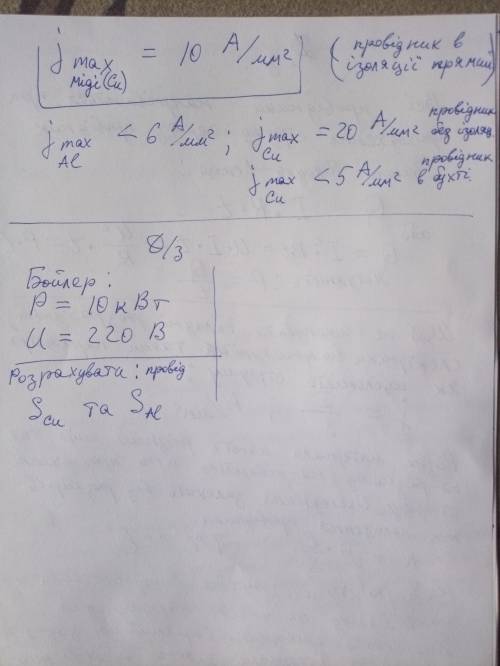 j max міді(Cu) = 10 А/мм² (провідник в ізоляції прямий)
j max Al < 6 А/мм²; j max Cu = 20 А/мм² провідник без ізоляц.
j max Cu < 5 А/мм² провідник в бухті.
Д/з
Бойлер:
P = 10 кВт
U = 220 В
Розрахувати: провід
S Cu та S Al